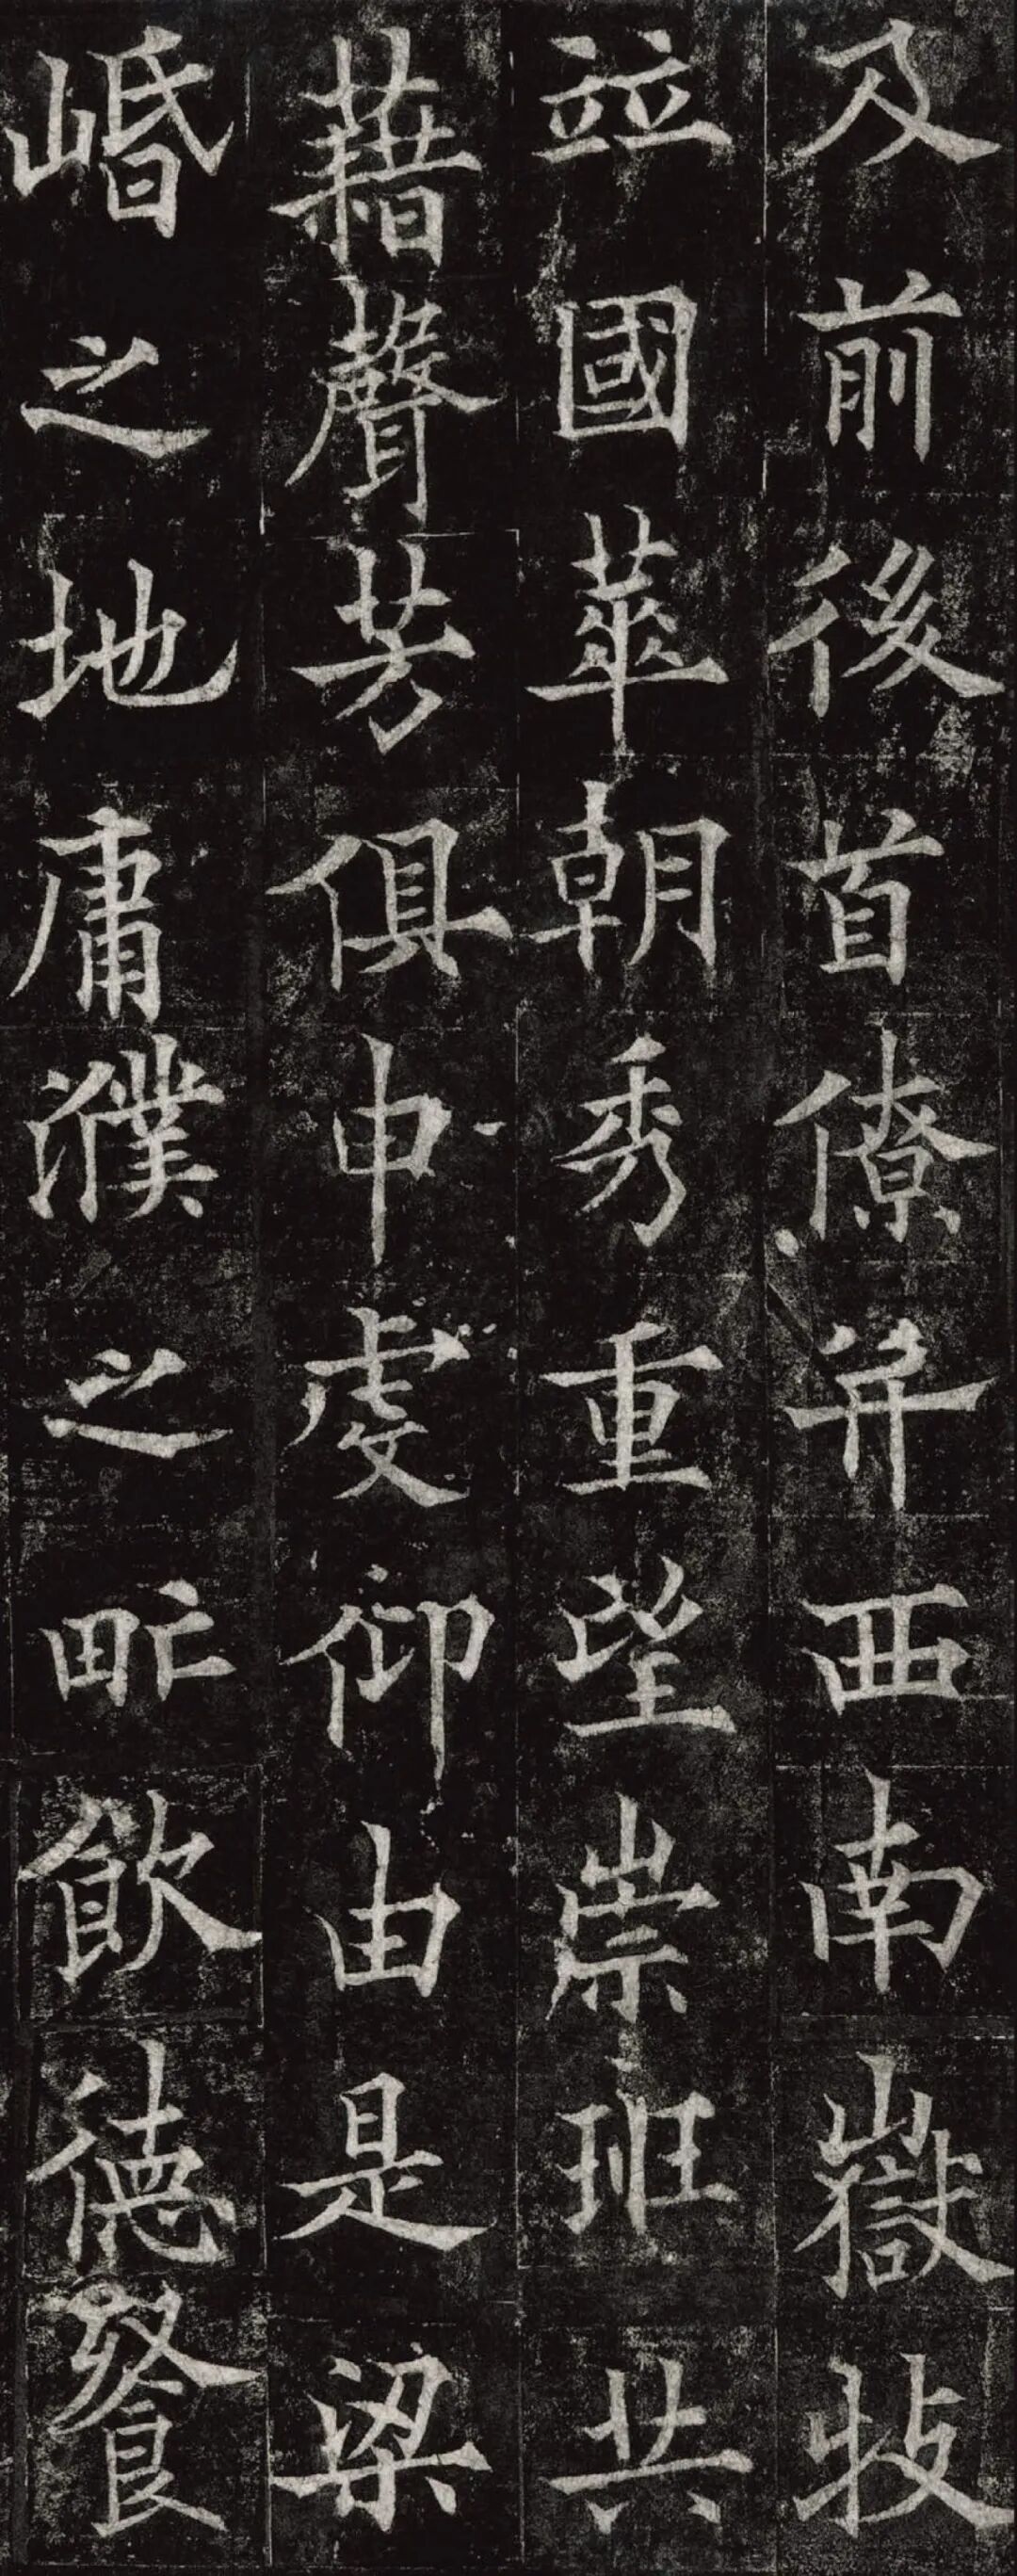 及前後首僚并西南嶽牧
竝國華朝秀重望崇班共
藉聲芳俱申虔仰由是梁
㟭之地庸濮之甿飲德餐